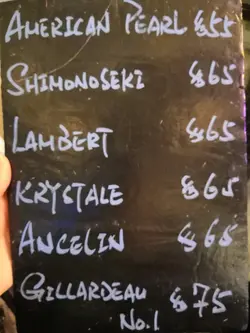 AMERICAN PEARL $55
SHIMONOSEKI $65
LAMBERT $65
KRYSTALE $65
ANCELIN $65
GILLARDEAU $75
NO.1